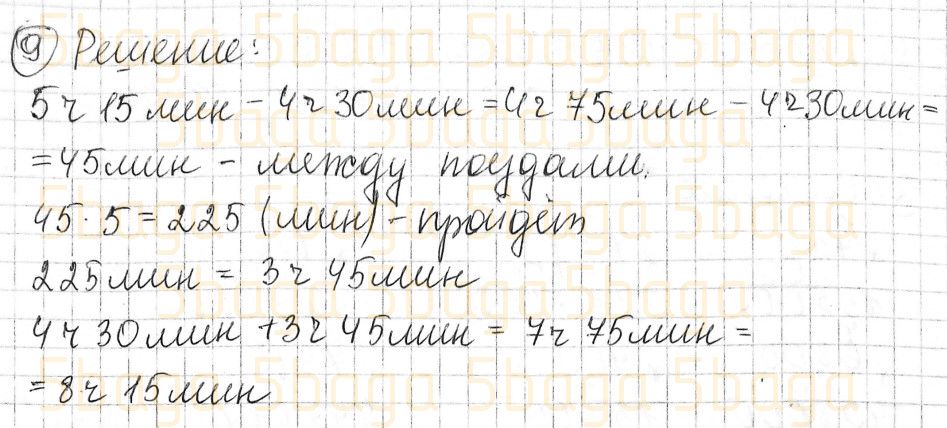 9 Решение:
5 ч 15 мин - 4 ч 30 мин = 4 ч 75 мин - 4 ч 30 мин =
= 45 мин - между поездами.
45 · 5 = 225 (мин) - пройдёт
225 мин = 3 ч 45 мин
4 ч 30 мин + 3 ч 45 мин = 7 ч 75 мин =
= 8 ч 15 мин
5baga 5baga 5baga 5baga